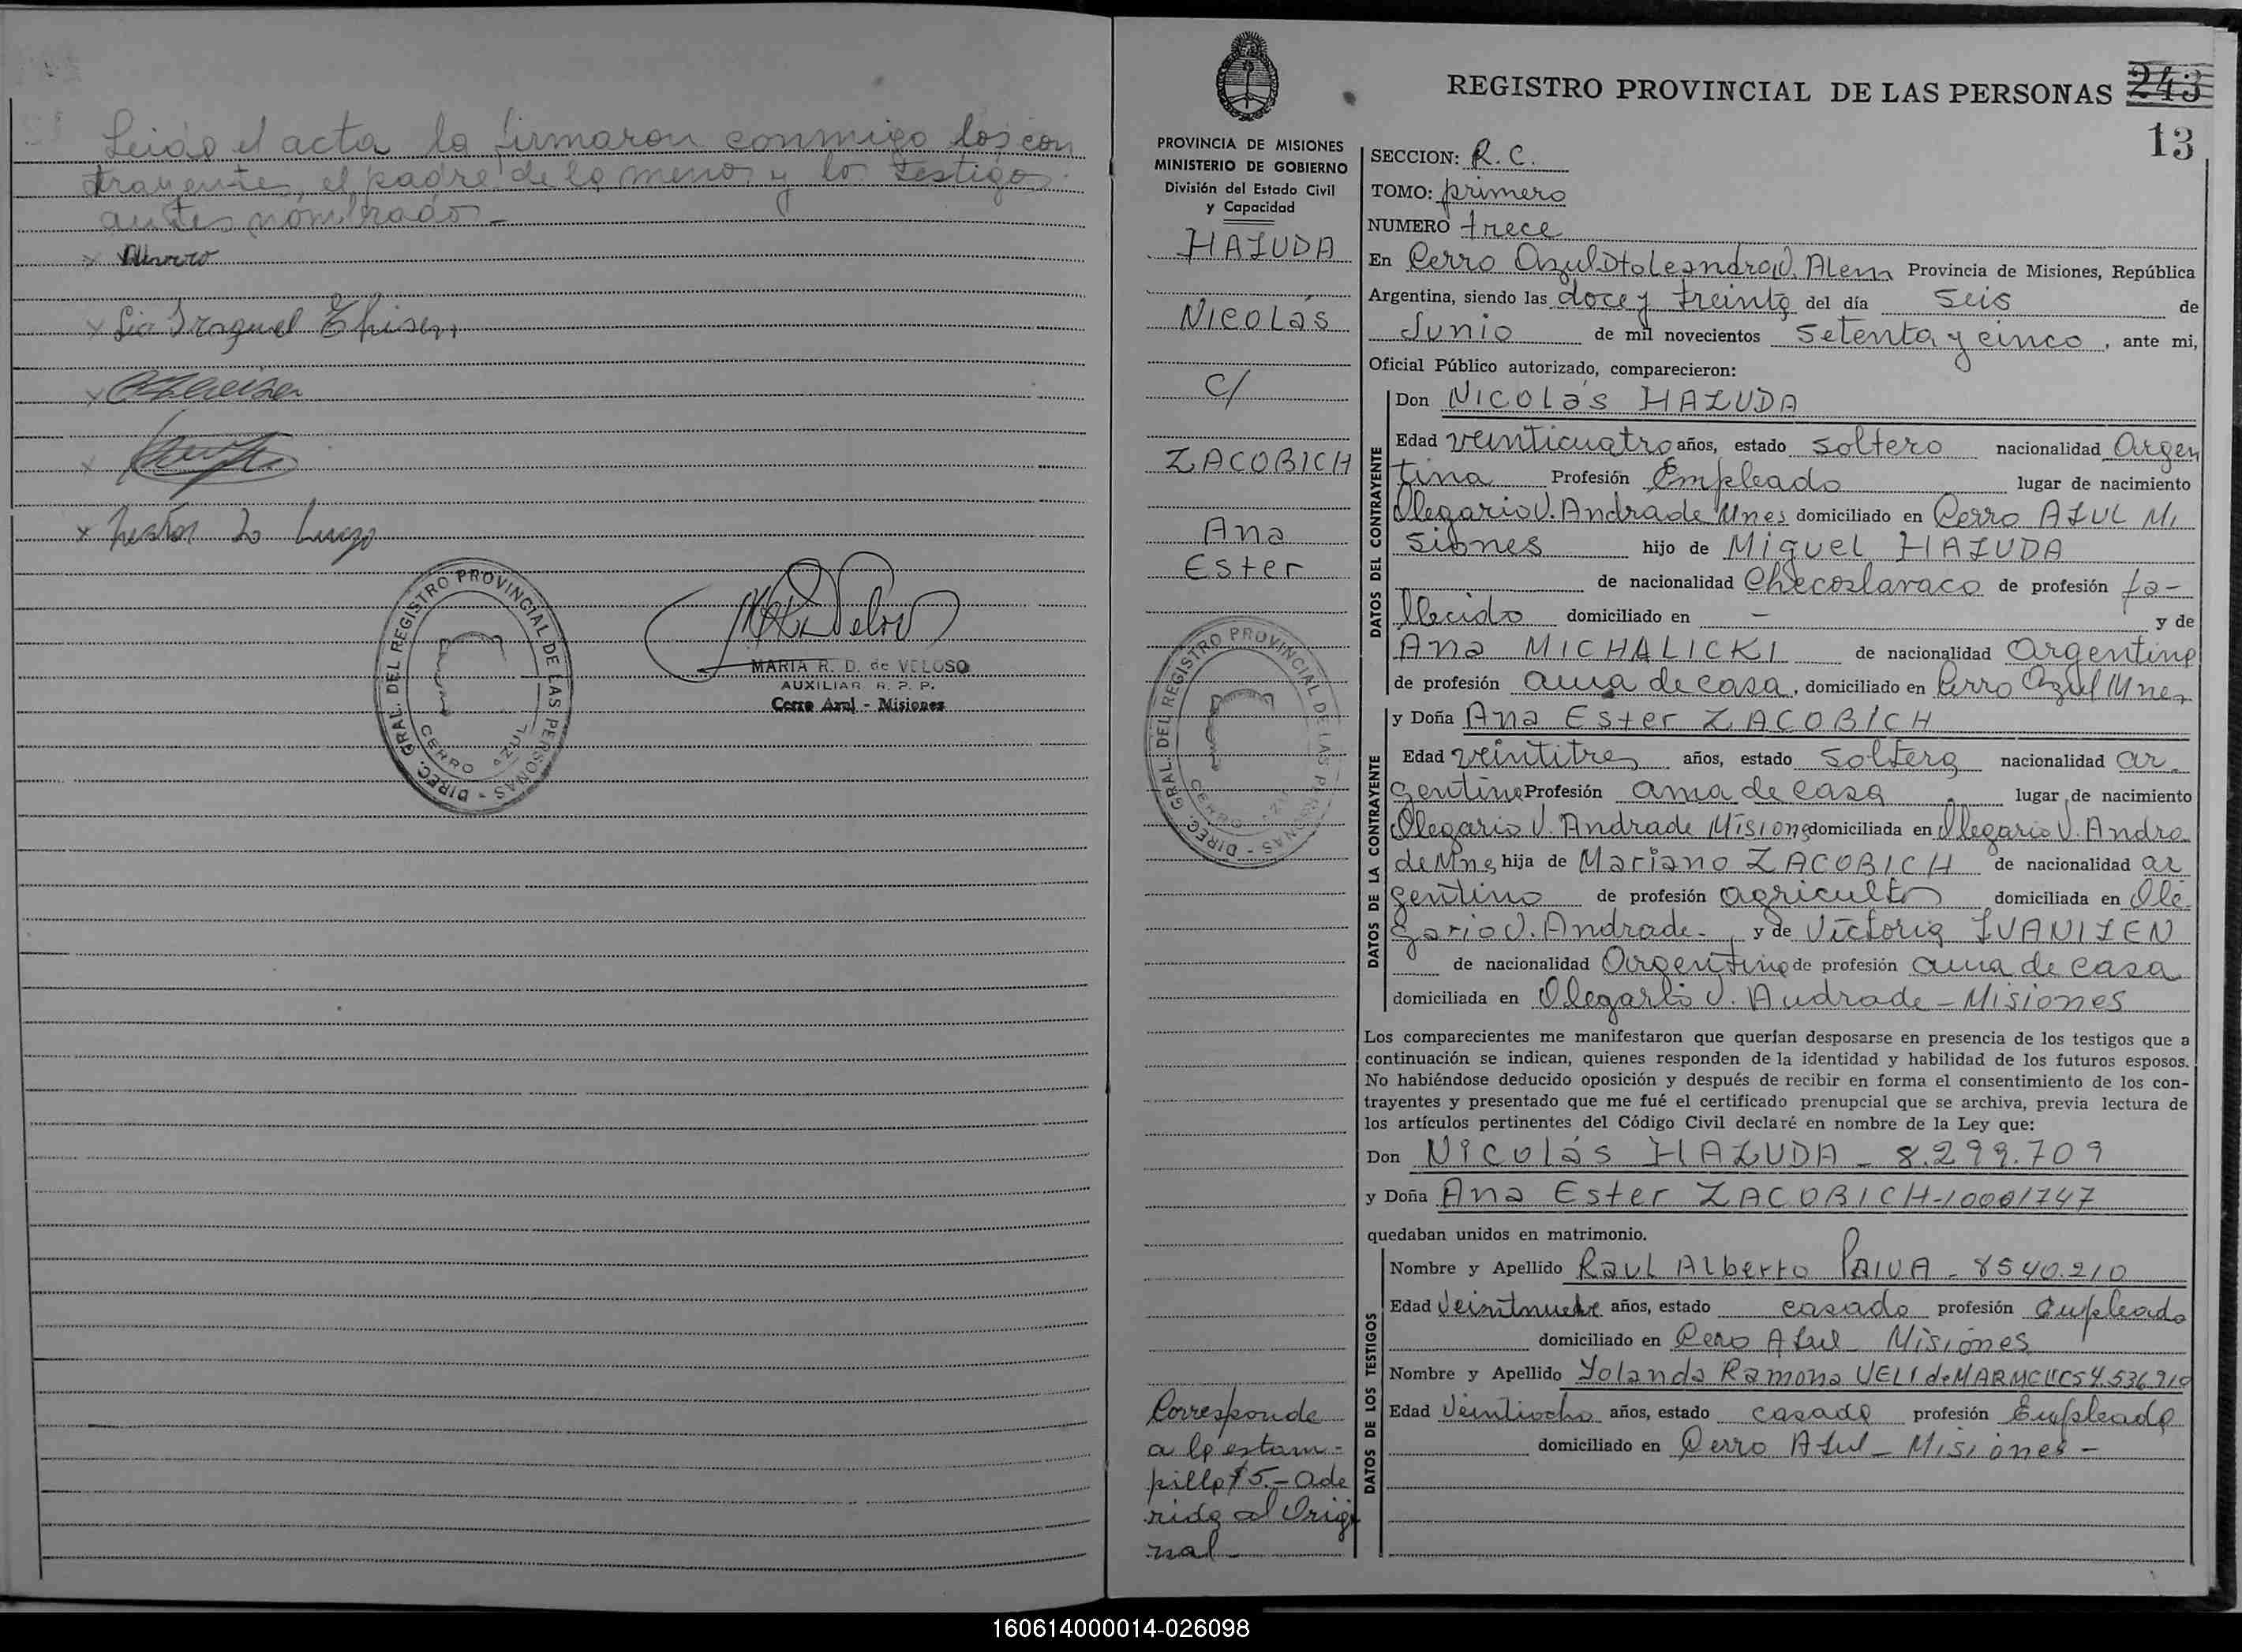 Leido el acta la firmaron conmigo los con
trayentes, el padre de la menor y los testigos
antes nombrados -
x
x
x
x
x
DIREC. GRAL. DEL REGISTRO PROVINCIAL DE LAS PERSONAS -
CERRO AZUL
MARIA R. D. de VELOSO
AUXILIAR R. P. P.
Cerro Azul - Misiones
REGISTRO PROVINCIAL DE LAS PERSONAS 243
13
PROVINCIA DE MISIONES
MINISTERIO DE GOBIERNO
División del Estado Civil
y Capacidad
HAZUDA
Nicolás
c/
ZACOBICH
Ana
Ester
DIREC. GRAL. DEL REGISTRO PROVINCIAL DE LAS PERSONAS -
CERRO AZUL
Corresponde
a la estam-
pilla $5.- ade
rida al Origi
nal -
SECCION: R. C.
TOMO: primero
NUMERO trece
En Cerro Azul Dto Leandro N. Alem Provincia de Misiones, República
Argentina, siendo las doce y treinta del día seis de
Junio de mil novecientos setenta y cinco, ante mi,
Oficial Público autorizado, comparecieron:
DATOS DEL CONTRAYENTE
Don Nicolás HAZUDA
Edad veinticuatro años, estado soltero nacionalidad Argen
tina Profesión Empleado lugar de nacimiento
Olegario V. Andrade Mnes domiciliado en Cerro AZUL Mi
siones hijo de Miguel HAZUDA
de nacionalidad Checoslavaco de profesión fa-
llecido domiciliado en - y de
Ana MICHALICKI de nacionalidad Argentina
de profesión ama de casa, domiciliado en Cerro Azul Mnes
DATOS DE LA CONTRAYENTE
y Doña Ana Ester ZACOBICH
Edad veintitres años, estado soltera nacionalidad ar
gentina Profesión ama de casa lugar de nacimiento
Olegario V. Andrade Misiones domiciliada en Olegario V. Andra
de Mnes hija de Mariano ZACOBICH de nacionalidad ar
gentino de profesión agricultor domiciliada en Ole
gario V. Andrade - y de Victoria IVANIZEN
de nacionalidad Argentina de profesión ama de casa
domiciliada en Olegario V. Andrade - Misiones
Los comparecientes me manifestaron que querían desposarse en presencia de los testigos que a
continuación se indican, quienes responden de la identidad y habilidad de los futuros esposos.
No habiéndose deducido oposición y después de recibir en forma el consentimiento de los con-
trayentes y presentado que me fué el certificado prenupcial que se archiva, previa lectura de
los artículos pertinentes del Código Civil declaré en nombre de la Ley que:
Don Nicolás HAZUDA - 8.299.709
y Doña Ana Ester ZACOBICH - 10001747
quedaban unidos en matrimonio.
DATOS DE LOS TESTIGOS
Nombre y Apellido Raul Alberto PAIVA - 8540.210
Edad Veintinueve años, estado casado profesión Empleado
domiciliado en Cerro Azul Misiones
Nombre y Apellido Yolanda Ramona de
Edad Veintiocho años, estado casada profesión Empleada
domiciliado en Cerro Azul - Misiones -
160614000014-026098